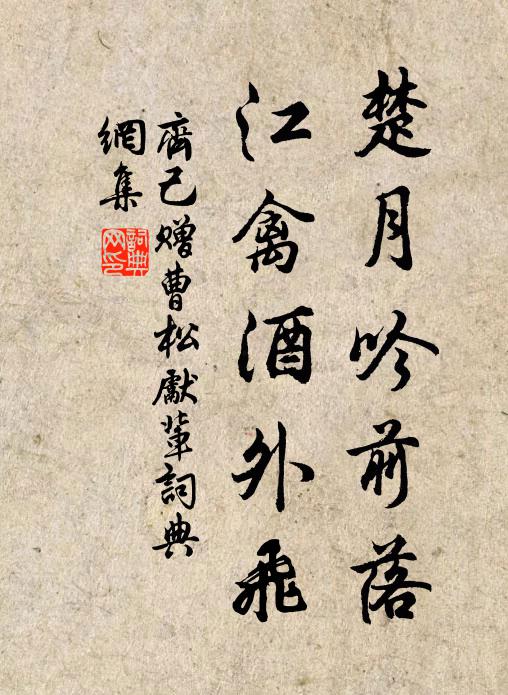 楚月吟前落
江禽酒外飛
齊己贈曹松獻輩詞典
網集
詞典網印